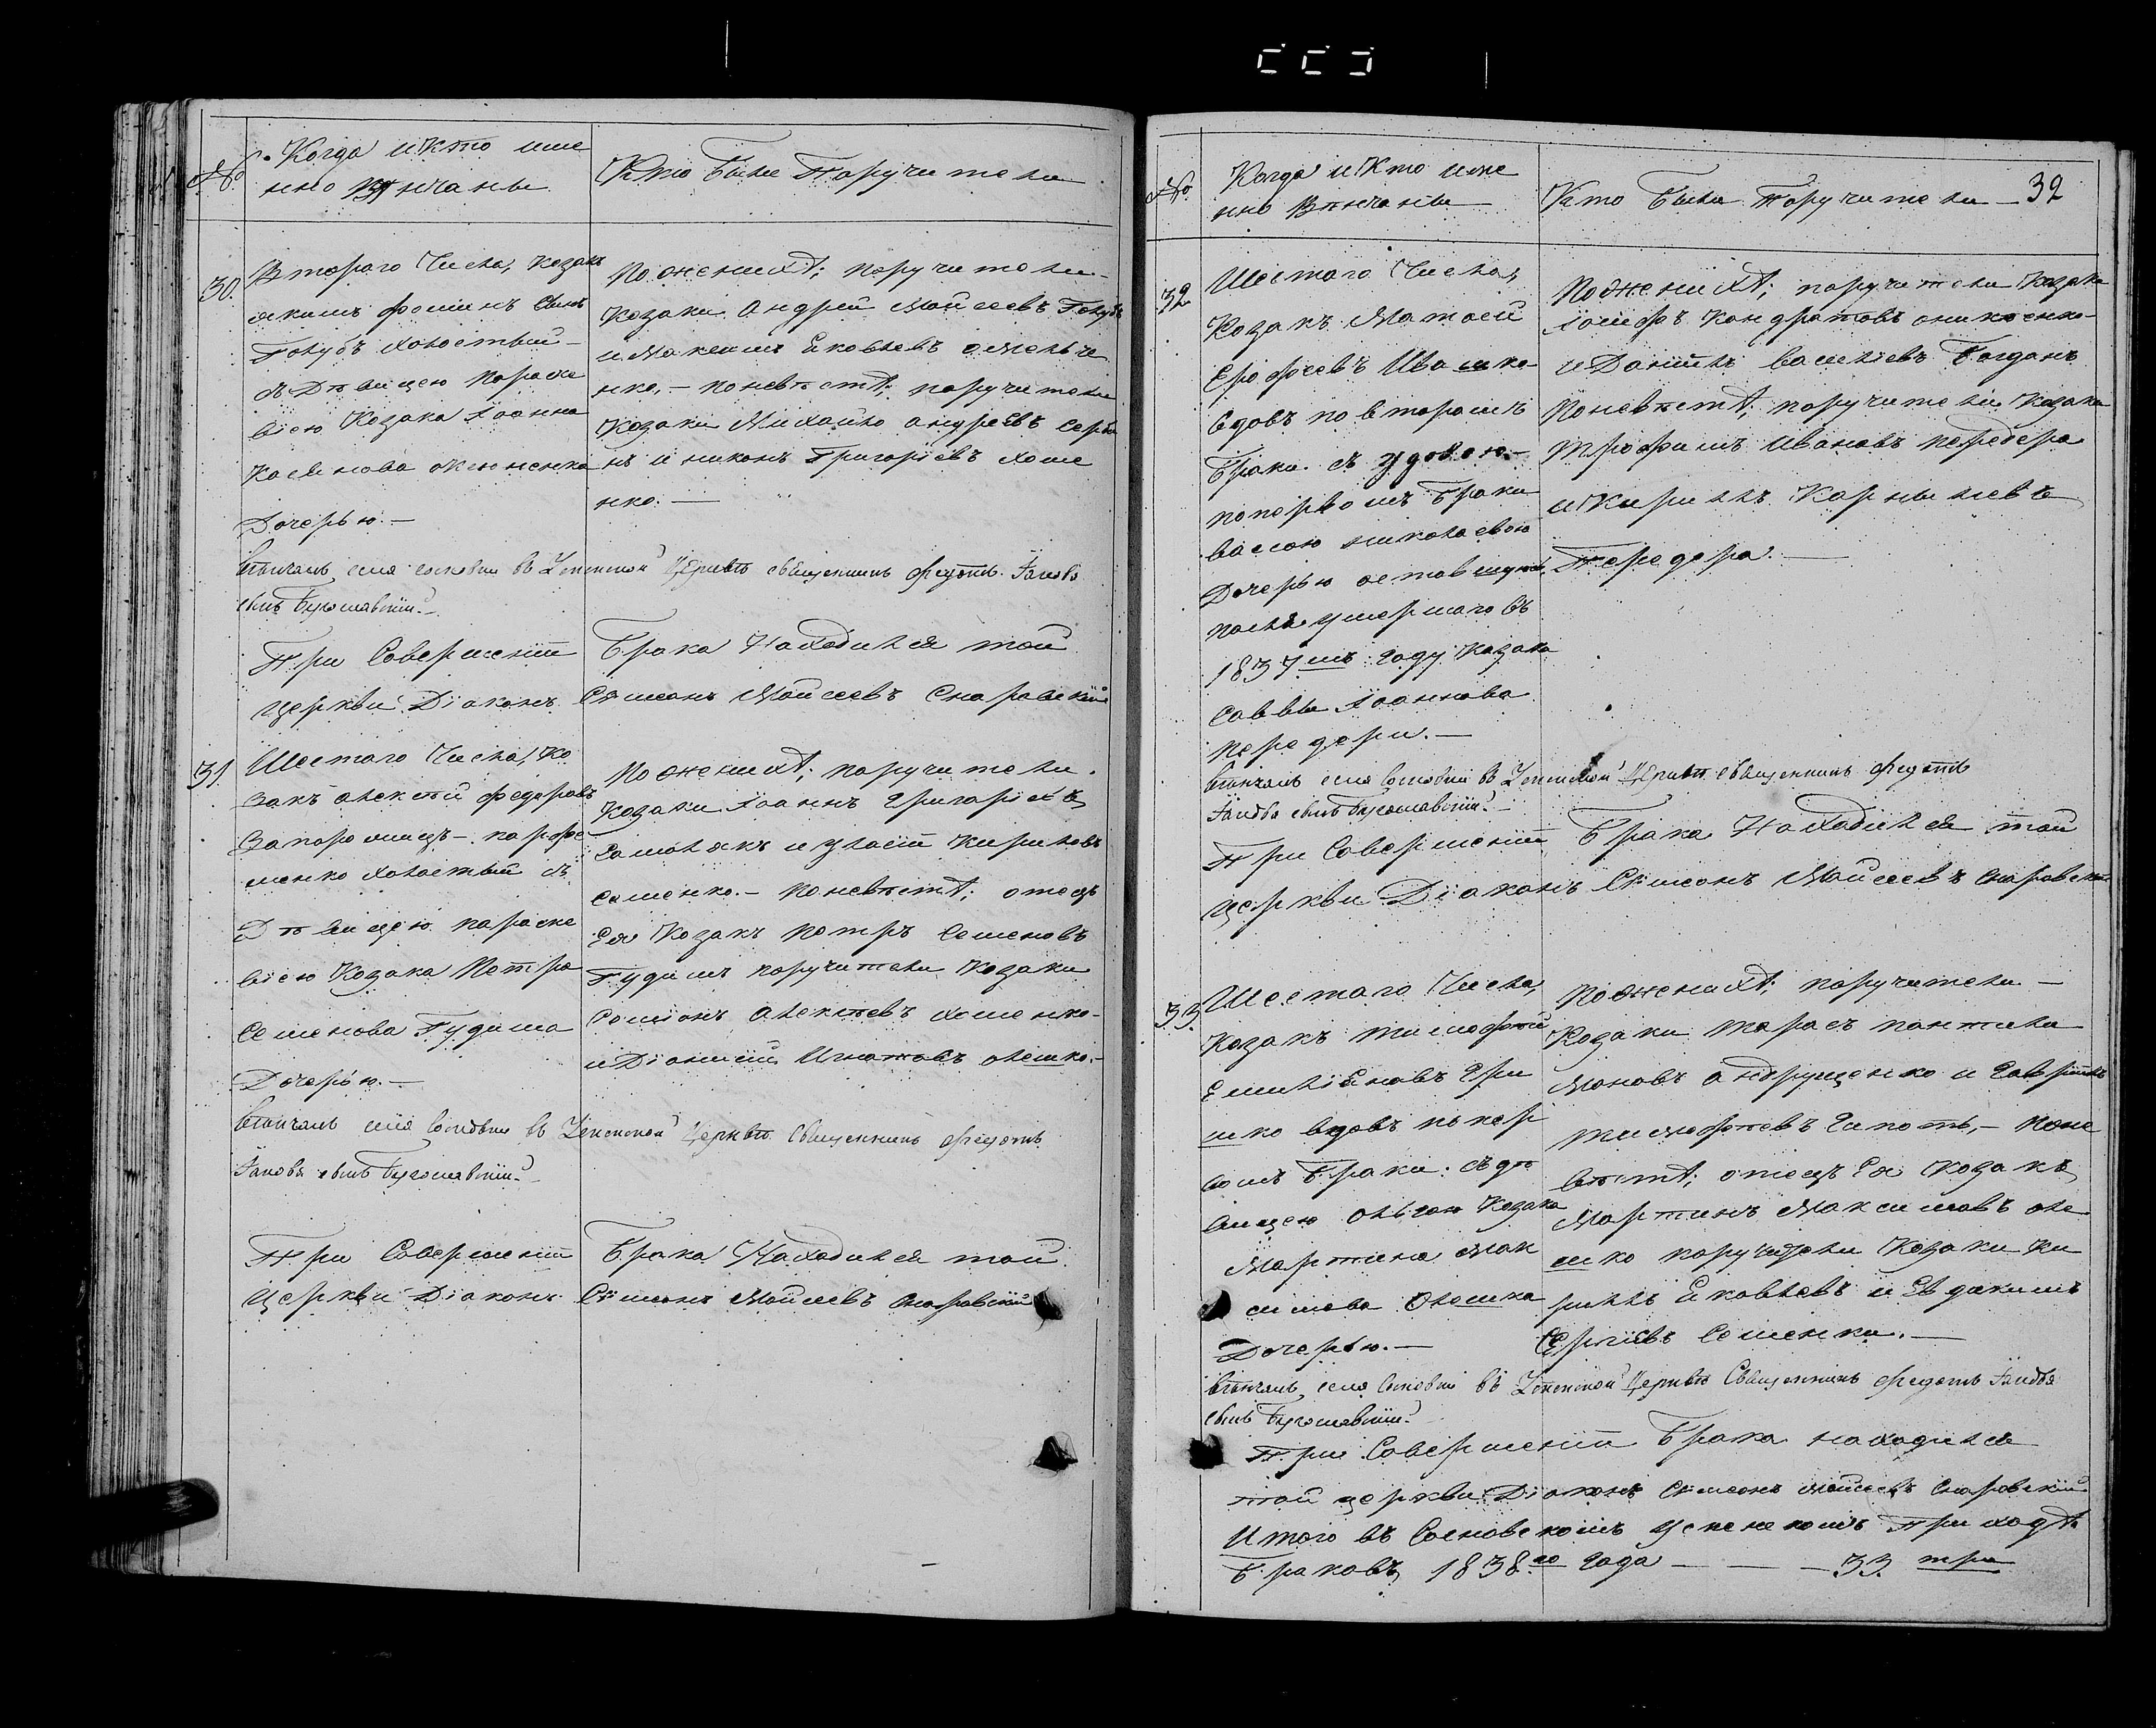 №
Когда и кто име
нно вѣнчаны
Кто были Поручители
30.
Втораго Числа, козакъ
якимъ фоминъ сынъ
Голубъ холостый –
съ Дѣвицею параске
віею Козака Іоанна
Касянова
Дочерью. –
По женихѣ; поручители –
козаки Андрей Мойсеевъ Голубъ
и Максимъ Яковлевъ
нко, – поневѣстѣ; поручители
козаки Михайло андреевъ Серби
нъ и никонъ Григоріевъ хоме
нко. –
Вѣнчалъ сей въ Успенской Церкви священникъ Федотъ Іаковъ
сынъ Богославскій.
При Совершеніи Брака Находился той
церкви Діаконъ Симеонъ Мойсеевъ Сноровскій
31.
Шестаго Числа, Ко
закъ алексѣй федоровъ
Запорожецъ – парфе
менко холостый съ
Дѣвицею параске
віею Козака Петра
Семенова Гудима
Дочерью. –
По женихѣ; поручители.
козаки Іоаннъ Григоріевъ
и Кириловъ
семенко. – поневѣстѣ; отецъ
Ея Козакъ Петръ Семеновъ
Гудимъ поручители козаки
Самсонъ Алексѣевъ хоменко –
и Діонисій Игнатовъ олешко. –
Вѣнчалъ сей въ Успенской Церкви Священникъ Федотъ
Іаковъ сынъ Богославскій.
При Совершеніи Брака Находился той
Церкви Діаконъ Симеонъ Мойсеевъ Сноровскій
№
Когда и Кто име
нно Вѣнчаны
Кто Были Поручители – 32
32
Шестаго Числа,
Козакъ Матвей
Ерофеевъ Ивашко –
вдовъ повторомъ
Браки. съ удовою –
попервомъ Браки
васою николаевою
Дочерью оставшуюся
послѣ умершаго въ
1837мъ году козака
Саввы Іоаннова
Передери. –
По женихѣ; поручители козаки
Іосифъ Кондратовъ
и Даніилъ василіевъ Богданъ
поневѣстѣ; поручители козаки
Трофимъ Ивановъ передера
и Кирилъ Корниліевъ
Передера. –
Вѣнчалъ сей въ Успенской Церкви священникъ Федотъ
Іаковъ сынъ Богославскій.
При Совершеніи Брака Находился той
церкви Діаконъ Симеонъ Мойсеевъ Сноровскій
33.
Шестаго Числа,
козакъ тимофей
Емиліяновъ Гри
шко вдовъ попер
вомъ Браки. съ дѣ
вицею ольгою Козака
Мартина Мак
симова Олешка
Дочерью. –
По женихѣ; поручители –
Козаки Тарасъ пантели
моновъ андрущенко и Гавріилъ
тимофѣевъ – поне
вѣстѣ; отецъ Ея козакъ
Мартинъ Максимовъ оле
шко поручители Козаки Ки
рилъ Яковлевъ и Евдокимъ
Сергіевъ Семенки. –
Вѣнчалъ сей въ Успенской Церкви Священникъ Федотъ Іаковъ
сынъ Богославскій.
При Совершеніи Брака находился
той церкви Діаконъ Симеонъ Мойсеевъ Сноровскій
Итого въ Сосновскомъ успенскомъ Приходѣ
Браковъ 1838го года – – – 33 три